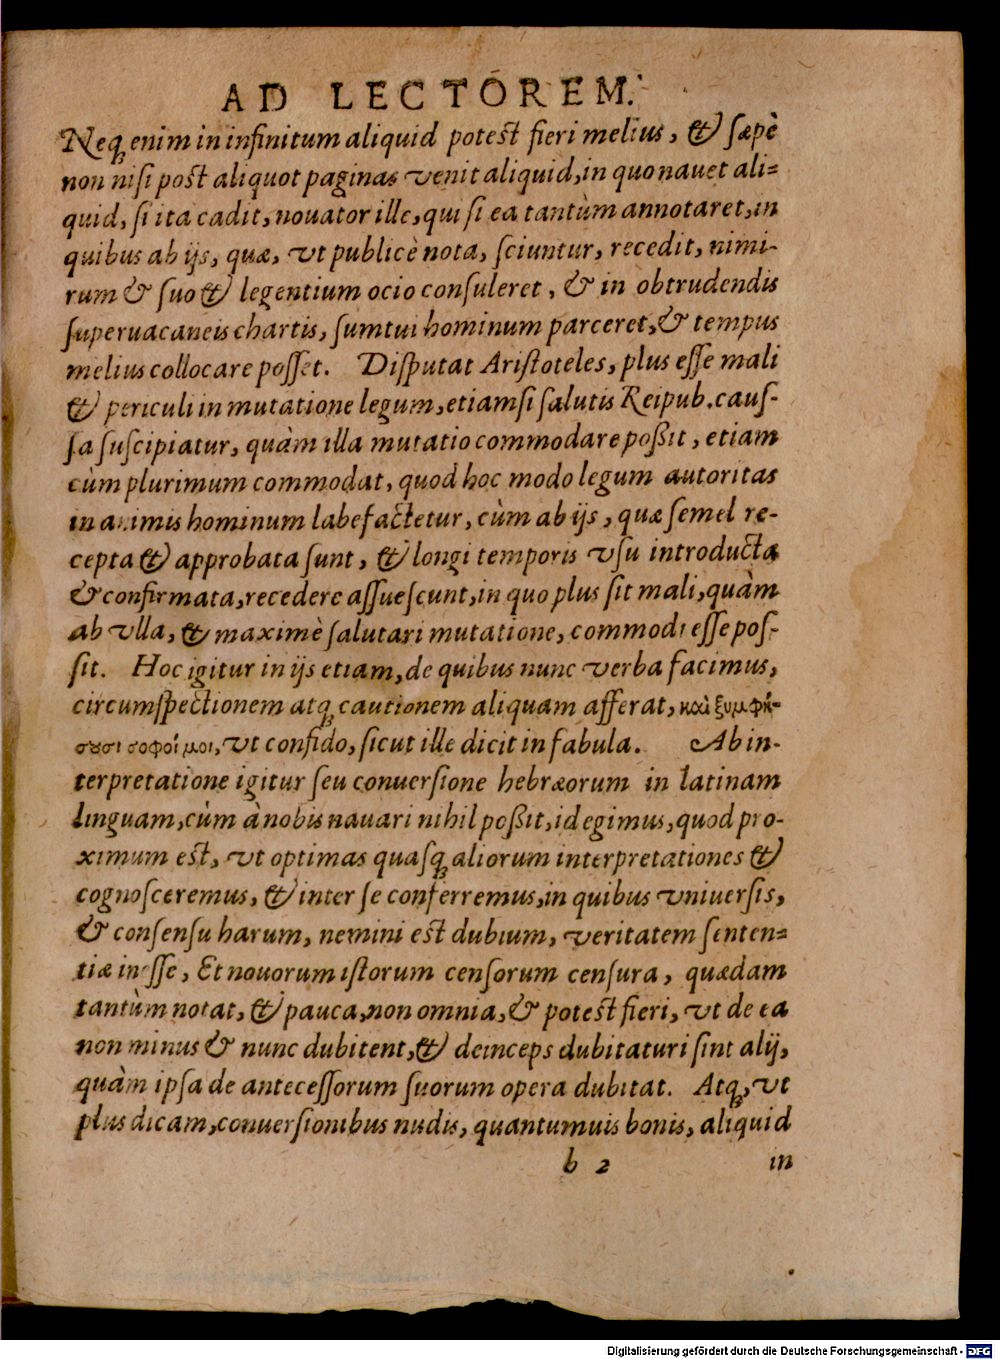 AD LECTOREM.
Neq́ enim in infinitum aliquid potest fieri melius, & sæpè
non nisi post aliquot paginas venit aliquid, in quo nauet ali=
quid, si ita cadit, nouator ille, qui si ea tantùm annotaret, in
quibus ab ijs, quæ, vt publicè nota, sciuntur, recedit, nimi-
rum & suo & legentium ocio consuleret, & in obtrudendis
superuacaneis chartis, sumtui hominum parceret, & tempus
melius collocare posset. Disputat Aristoteles, plus esse mali
& periculi in mutatione legum, etiamsi salutis Reipub. caus-
sa suscipiatur, quàm illa mutatio commodare poßit, etiam
cùm plurimum commodat, quod hoc modo legum autoritas
in animis hominum labefactetur, cùm ab ijs, quæ semel re-
cepta & approbata sunt, & longi temporis vsu introducta
& confirmata, recedere assuescunt, in quo plus sit mali, quàm
ab vlla, & maximè salutari mutatione, commodi esse pos-
sit. Hoc igitur in ijs etiam, de quibus nunc verba facimus,
circumspectionem atq́ cautionem aliquam afferat, καὶ ξυμφή-
σουσι σοφοί μοι, vt confido, sicut ille dicit in fabula. Ab in-
terpretatione igitur seu conuersione hebræorum in latinam
linguam, cùm à nobis nauari nihil poßit, id egimus, quod pro-
ximum est, vt optimas quasq́ aliorum interpretationes &
cognosceremus, & inter se conferremus, in quibus vniuersis,
& consensu harum, nemini est dubium, veritatem senten=
tiæ inesse, Et nouorum istorum censorum censura, quædam
tantùm notat, & pauca, non omnia, & potest fieri, vt de ea
non minus & nunc dubitent, & deinceps dubitaturi sint alij,
quàm ipsa de antecessorum suorum opera dubitat. Atq́, vt
plus dicam, conuersionibus nudis, quantumuis bonis, aliquid
b 2 in
Digitalisierung gefördert durch die Deutsche Forschungsgemeinschaft - DFG